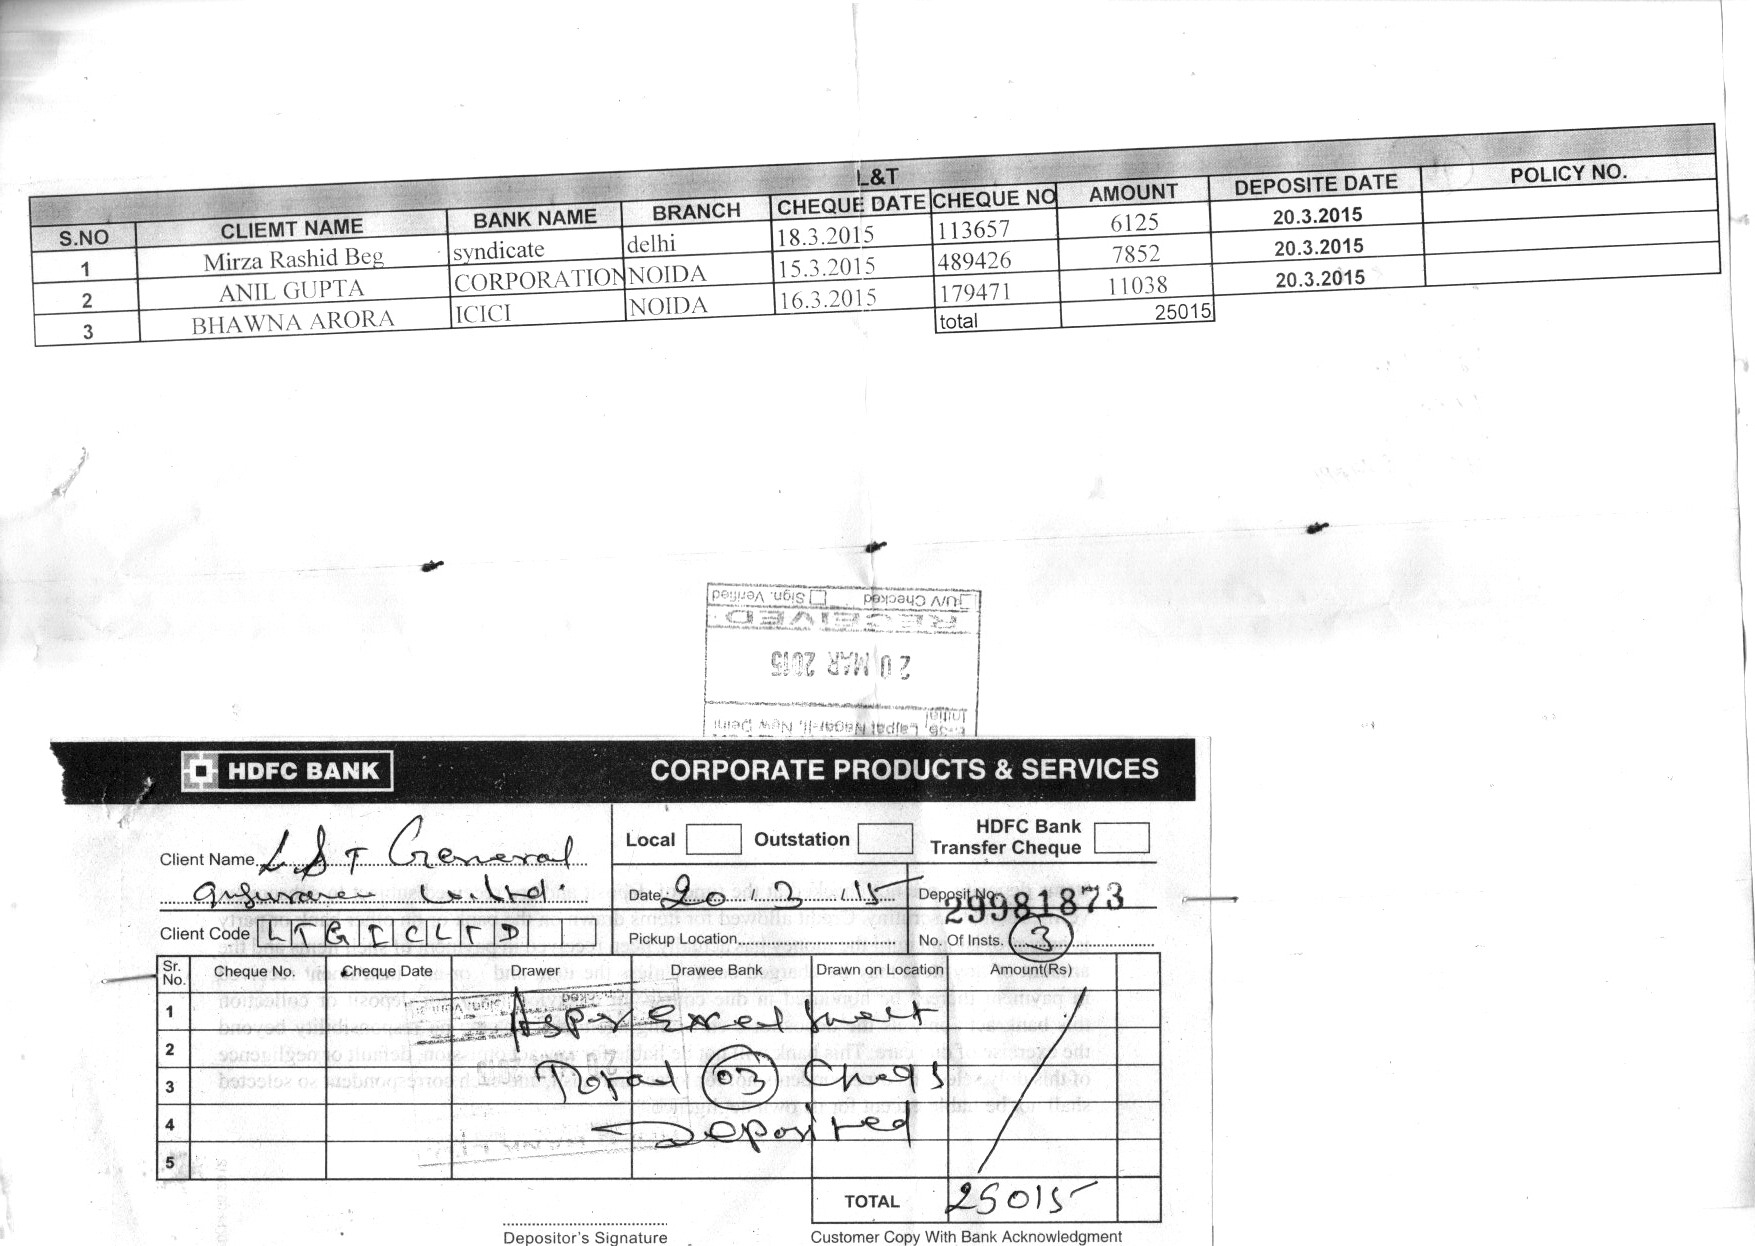 L&T
S.NO CLIEMT NAME BANK NAME BRANCH CHEQUE DATE CHEQUE NO AMOUNT DEPOSITE DATE POLICY NO.
1 Mirza Rashid Beg syndicate delhi 18.3.2015 113657 6125 20.3.2015
2 ANIL GUPTA CORPORATION NOIDA 15.3.2015 489426 7852 20.3.2015
3 BHAWNA ARORA ICICI NOIDA 16.3.2015 179471 11038 20.3.2015
total 25015
UV Checked Sign. Verified
RECEIVED
20 MAR 2015
Initial
Lajpat Nagar-II, New Delhi
HDFC BANK CORPORATE PRODUCTS & SERVICES
Local Outstation HDFC Bank Transfer Cheque
Client Name L&T General
Insurance Co. Ltd.
Date 20/3/15 Deposit No. 29981873
Client Code LTGICLTD
Pickup Location No. Of Insts. 3
Sr. No. Cheque No. Cheque Date Drawer Drawee Bank Drawn on Location Amount(Rs)
1 As per Excel Sheet
2
3 Total 03 Chqs
4 Deposited
5
TOTAL 25015
Depositor's Signature Customer Copy With Bank Acknowledgment